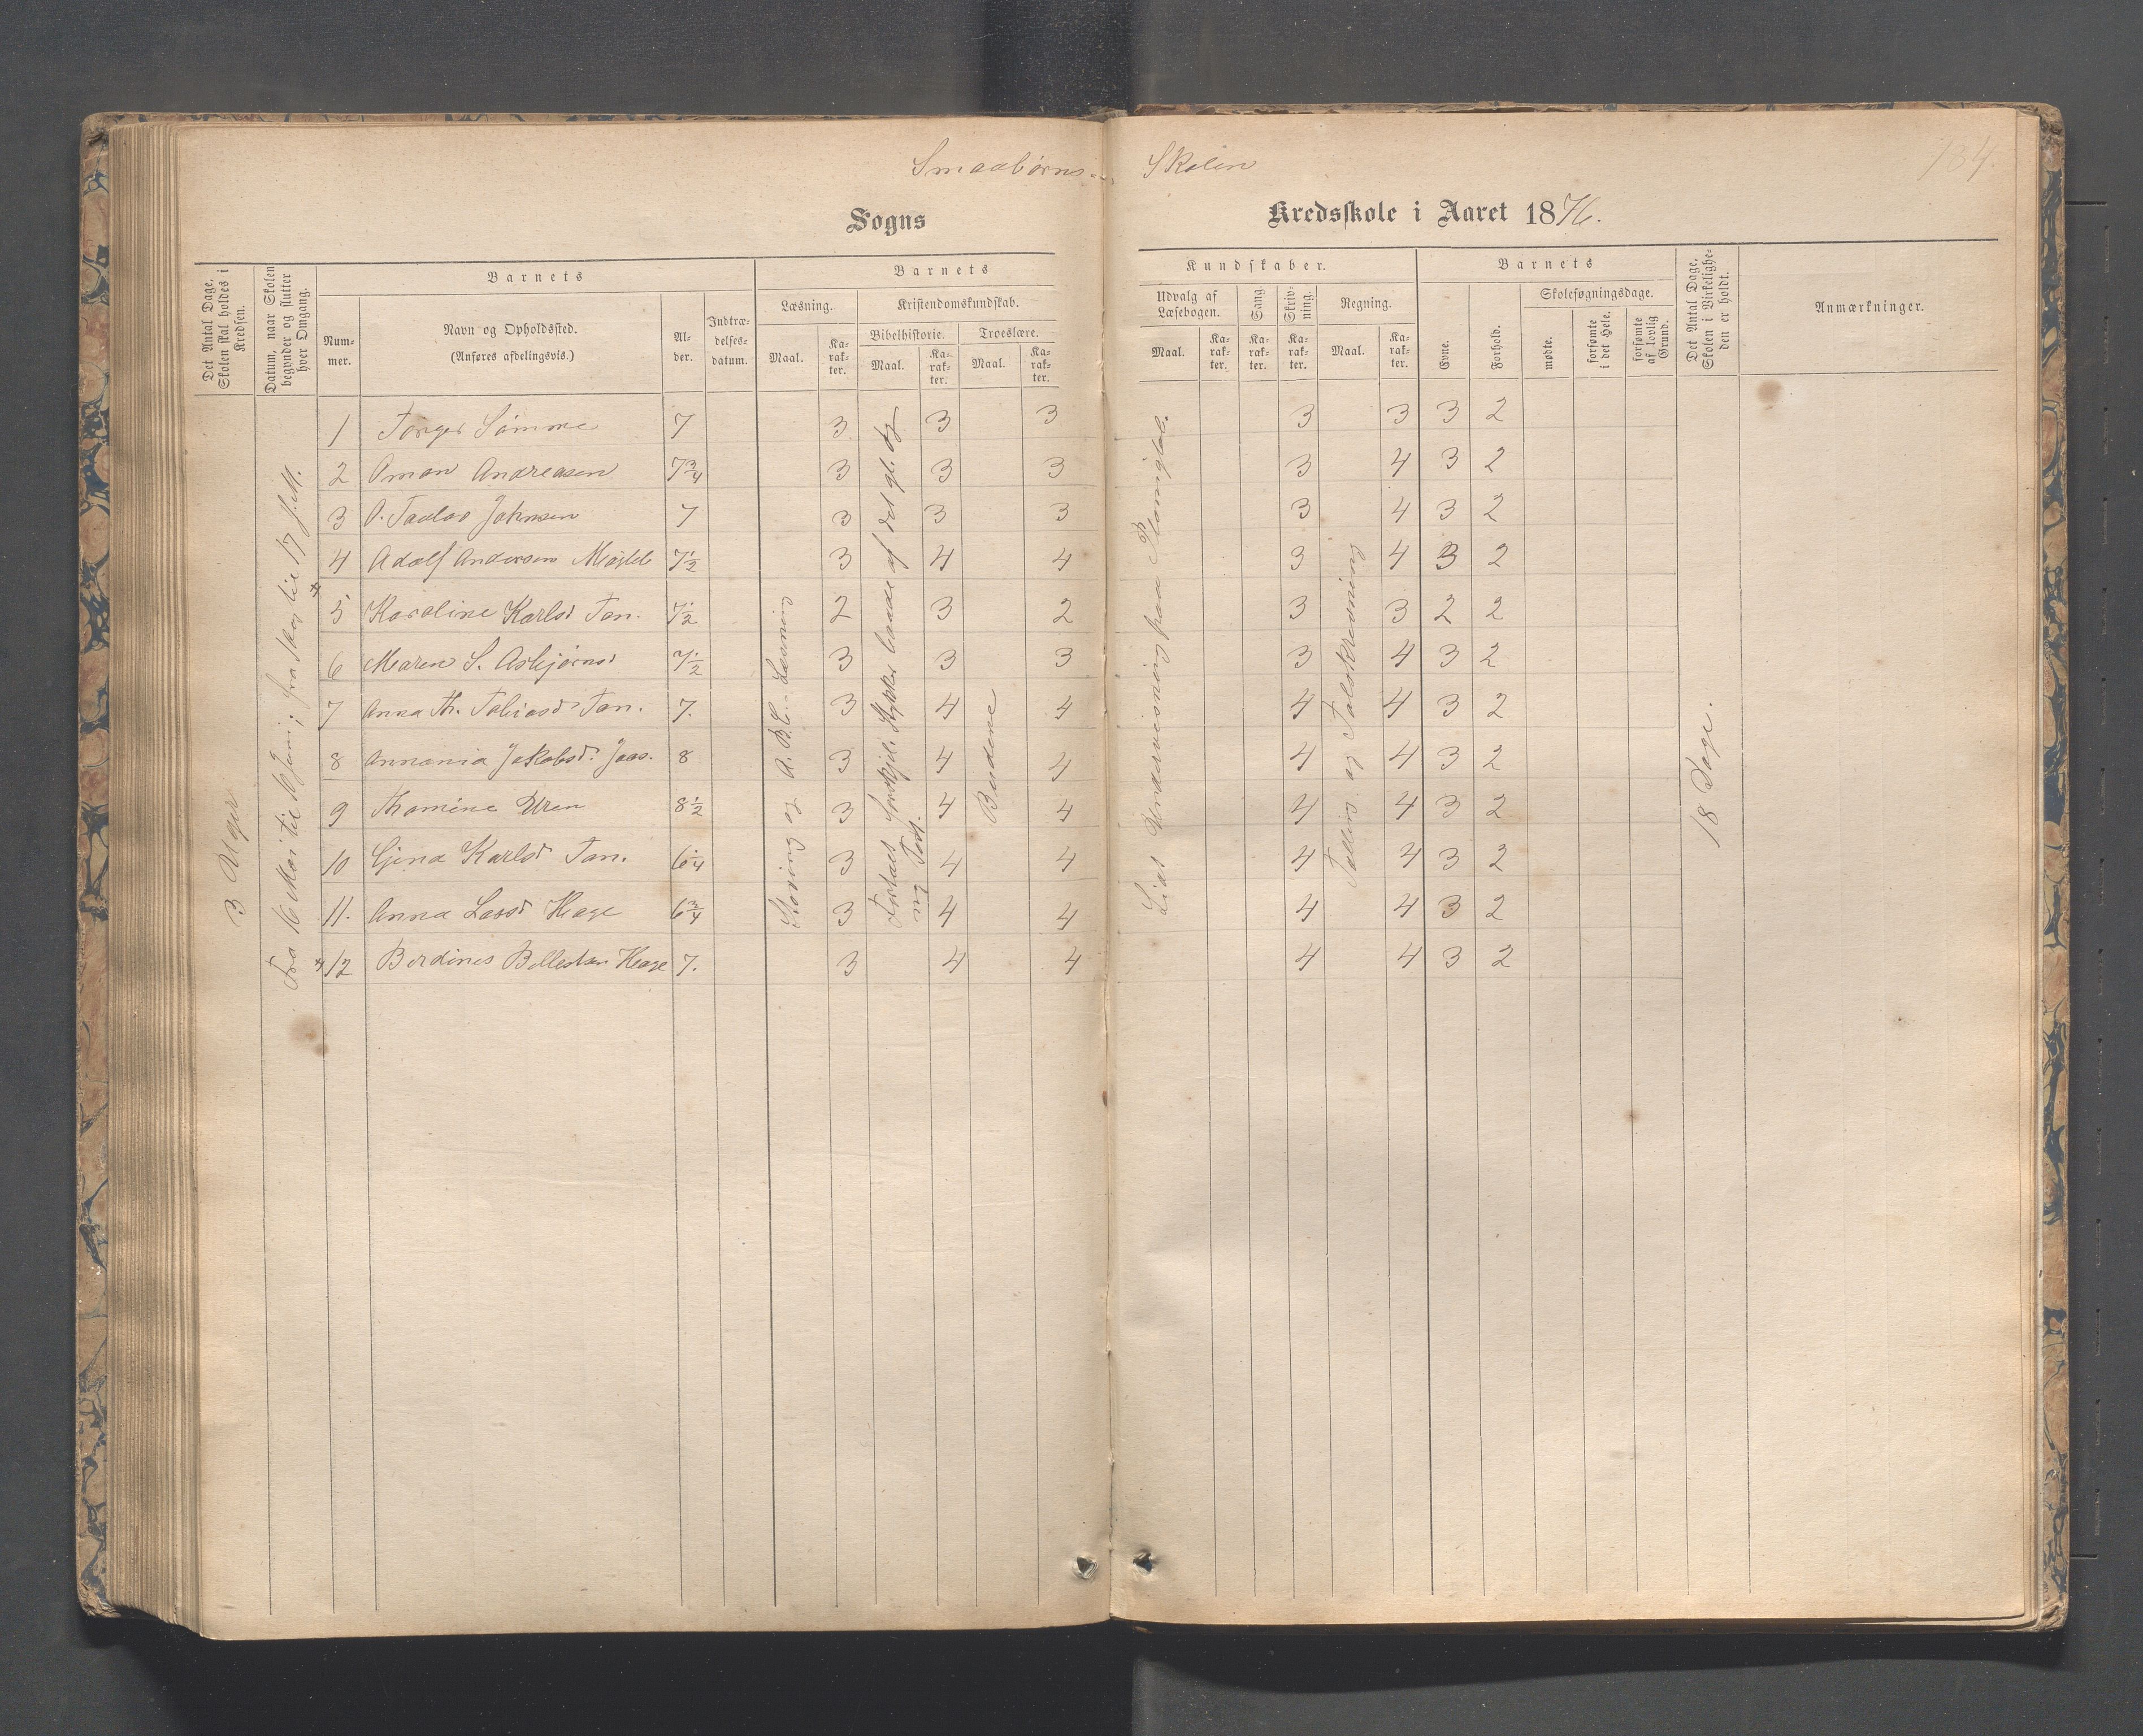 Smaabørns- Skolen
134.
Sogns Kredsskole i Aaret 1876.
Det Antal Dage, Skolen skal holdes i Kredsen.
Datum, naar Skolen begynder og slutter hver Omgang.
Barnets
Nummer.
Navn og Opholdssted.
(Anføres afdelingsvis.)
Alder.
Indtrædelsesdatum.
Barnets
Læsning.
Maal.
Karakter.
Kristendomskundskab.
Bibelhistorie.
Maal.
Karakter.
Troeslære.
Maal.
Karakter.
Kundskaber.
Udvalg af Læsebogen.
Maal.
Karakter.
Sang.
Karakter.
Skrivning.
Karakter.
Regning.
Maal.
Karakter.
Barnets
Evne.
Forhold.
Skolesøgningsdage.
mødte.
forsømte i det Hele.
forsømte af lovlig Grund.
Det Antal Dage, Skolen i Virkeligheden er holdt.
Anmærkninger.
3 Uger
Fra 16 Mai til 6 Juni;
Staving og A.B.C. Læsning
Stykker baade af det gl. og
ny Test.
Budene
Lidt Undervisning paa
Tælling og Talskrevning
18 Dage.
1 Torger Sømme 7 3 3 3 3 3 3 2
2 Oman Andreasen 7 3/4 3 3 3 3 4 3 2
3 O. Taulov Johnsen 7 3 3 3 3 4 3 2
4 Adolf Andersen 7 1/2 3 4 4 3 4 3 2
5 Karoline Karlsd Tan. 7 1/2 2 3 2 3 3 2 2
6 Maren S. Asbjørnsd 7 1/2 3 3 3 3 4 3 2
7 Anna Th. Tobiasd Tan. 7. 3 4 4 4 4 3 2
8 Annania Jakobsd. Jaas. 8 3 4 4 4 4 3 2
9 Thomine Uren 8 1/2 3 4 4 4 4 3 2
10 Gina Karlsd Tan. 6 1/4 3 4 4 4 4 3 2
11. Anna Larsd Hage 6 3/4 3 4 4 4 4 3 2
12 Berdines Hage 7. 3 4 4 4 4 3 2